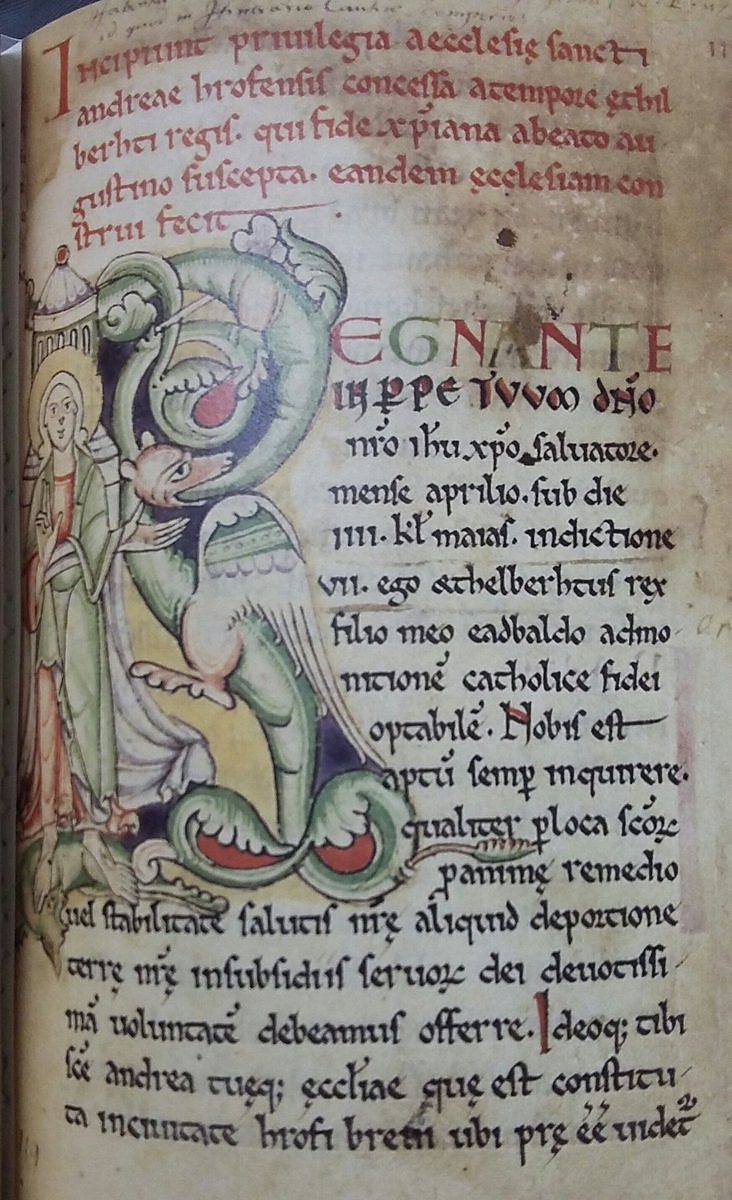 Incipiunt priuilegia aecclesię sancti
andreae hrofensis concessa a tempore ęthil
berhti regis. qui fide xp̄iana a beato au
gustino suscepta. eandem ęcclesiam con
strui fecit.
REGNANTE
IN P̄PETVVM DN̄O
nr̄o ihū xp̄o saluatore.
mense aprilio. sub die
IIII. kl̄ maias. indictione
VII. ego æthelberhtus rex
filio meo eadbaldo admo
nitionē catholice fidei
optabilē. Nobis est
aptū semp̄ inquirere.
qualiter p̄ loca scōꝝ
p̄ animę remedio
uel stabilitate salutis nr̄ę aliquid de portione
terrę nr̄ę in subsidiis seruoꝝ dei deuotissi
mā uoluntatē debeamus offerre. Ideoq; tibi
scē andrea tuęq; ęccl̄iae quę est constitu
ta in ciuitate hrofi breui ubi pręēē uidet᷑